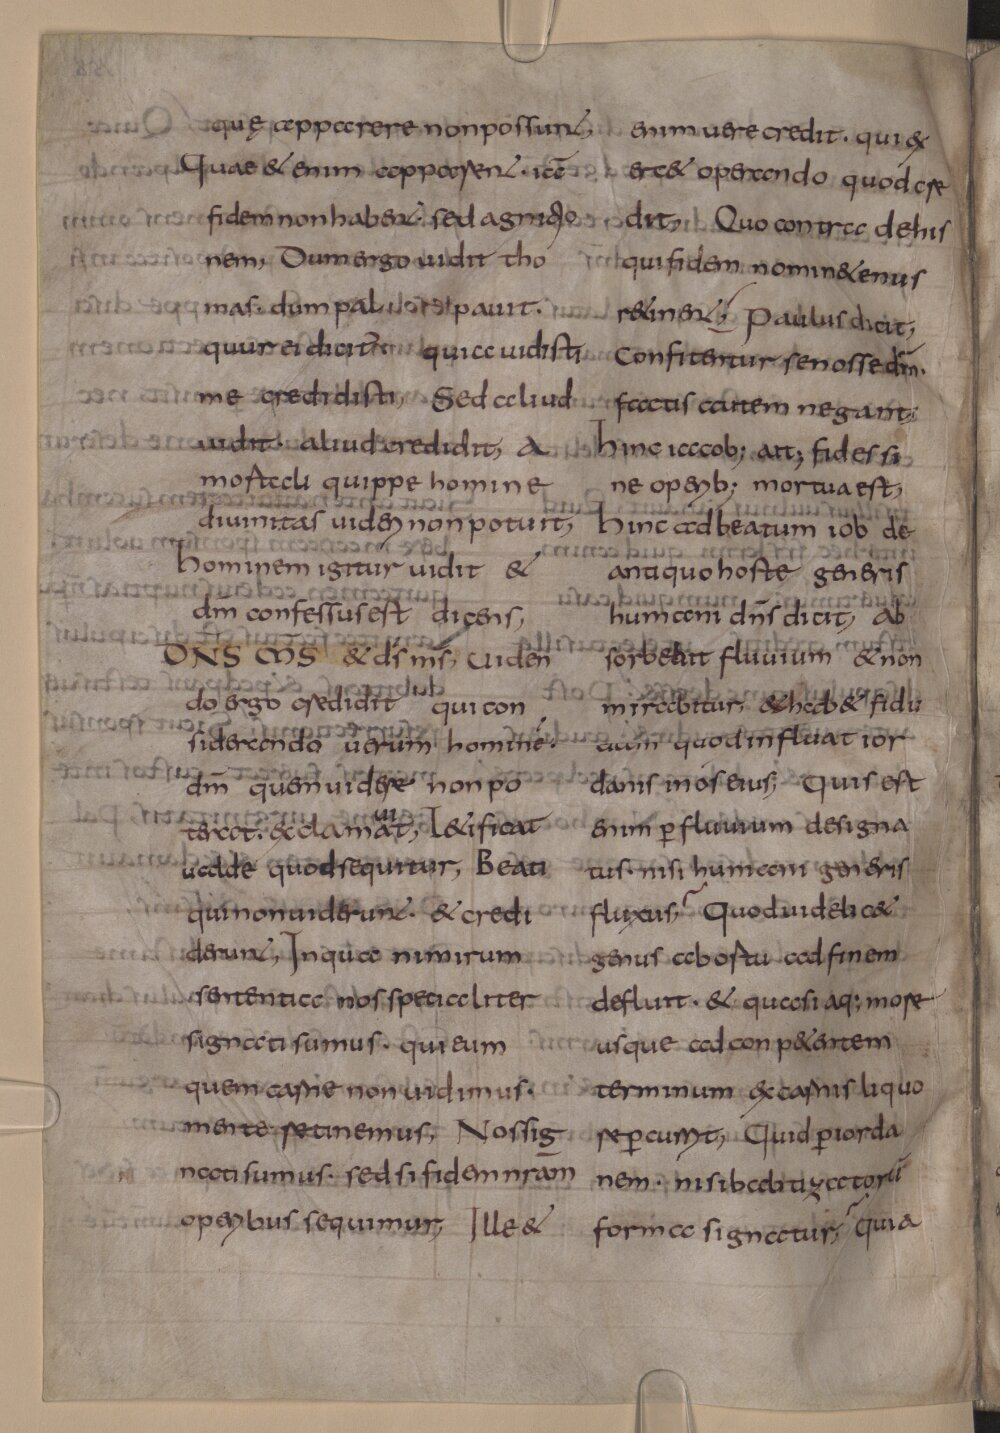 quę apparere non possunt,
Quae & enim apparent · iā
fidem non habent · sed agnitio
nem, Dum ergo uidit tho
mas · dum palpauit ·
quur ei dicitur quia uidisti
me credidisti, Sed aliud
uidit · aliud credidit, A
mortali quippe homine
diuinitas uideri non potuit,
hominem igitur uidit &
dm̄ confessus est dicens,
DN̄S M̄S & ds̄ ms̄, Uiden
do ergo credidit qui con
siderando uerum homine ·
dm̄ quem uidere non po
terat · exclamauit, Letificat
ualde quod sequitur, Beati
qui non uiderunt · & credi
derunt, In qua nimirum
sententia nos specialiter
signati sumus · qui eum
quem carne non uidimus ·
mente retinemus, Nos sig
nati sumus · sed si fidem nr̄am
operibus sequimur, Ille &
enim uere credit · qui ex
ercet operando quod cre
dit, Quo contra de his
qui fidem nomine tenus
retinent, Paulus dicit,
Confitentur se nosse dm̄ ·
factis autem negant,
hinc iacob; ait; fides si
ne operib; mortua est,
hinc ad beatum iob de
antiquo hoste generis
humani dn̄s dicit, Ab
sorbebit fluuium & non
mirabitur, & habet fidu
ciam quod influat ior
danis in os eius, Quis est
enim p̄ fluuium designa
tus · nisi humani generis
fluxus, Quod uidelicet
genus ab ortu ad finem
defluit · & quasi aq; more
usque ad conpetentem
terminum ex carnis liquo
re p̄currit, Quid p̄ iorda
nem · nisi babtizatorū
forma signatur, Quia